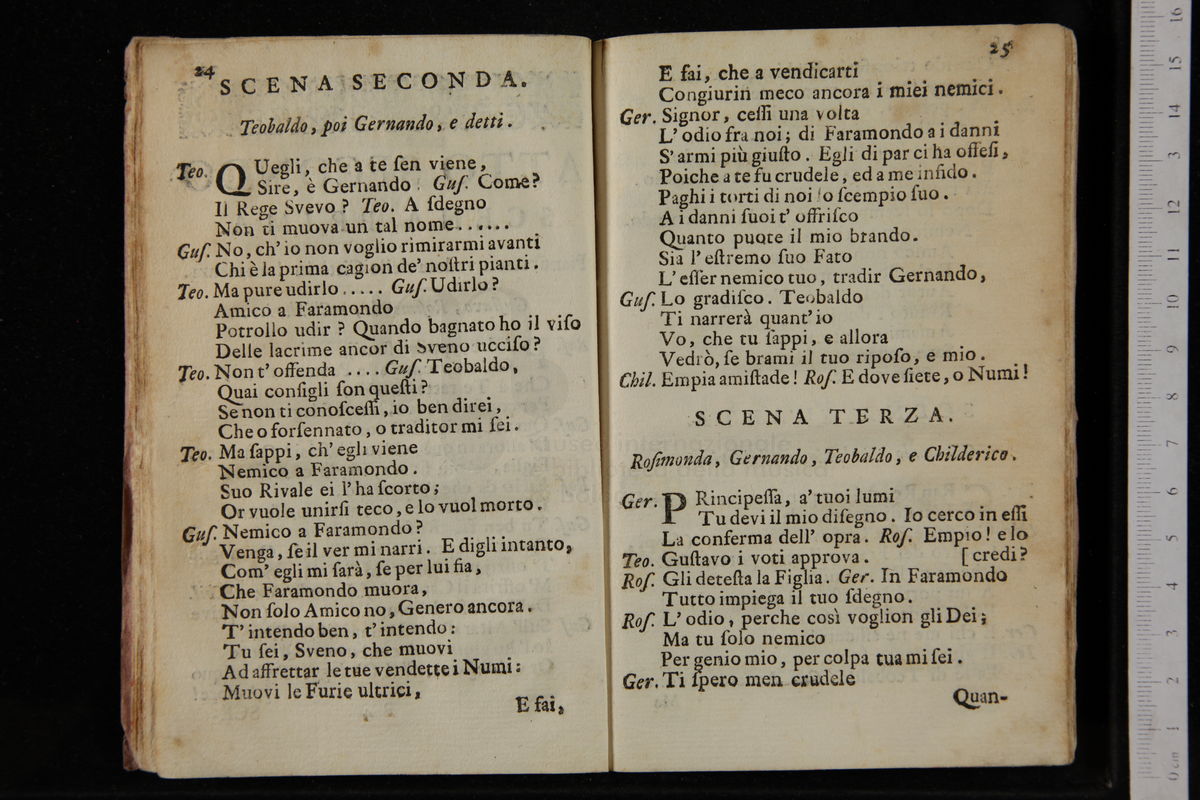 24
SCENA SECONDA.
Teobaldo, poi Gernando, e detti.
Teo. QUegli, che a te ſen viene,
Sire, è Gernando. Guſ. Come?
Il Rege Svevo? Teo. A ſdegno
Non ti muova un tal nome......
Guſ. No, ch'io non voglio rimirarmi avanti
Chi è la prima cagion de' noſtri pianti.
Teo. Ma pure udirlo..... Guſ. Udirlo?
Amico a Faramondo
Potrollo udir? Quando bagnato ho il viſo
Delle lacrime ancor di Sveno ucciſo?
Teo. Non t'offenda .... Guſ. Teobaldo,
Quai conſigli ſon queſti?
Se non ti conoſceſſi, io ben direi,
Che o forſennato, o traditor mi ſei.
Teo. Ma ſappi, ch'egli viene
Nemico a Faramondo.
Suo Rivale ei l'ha ſcorto;
Or vuole unirſi teco, e lo vuol morto.
Guſ. Nemico a Faramondo?
Venga, ſe il ver mi narri. E digli intanto,
Com' egli mi ſarà, ſe per lui fia,
Che Faramondo muora,
Non ſolo Amico no, Genero ancora.
T'intendo ben, t'intendo:
Tu ſei, Sveno, che muovi
Ad affrettar le tue vendette i Numi:
Muovi le Furie ultrici,
E fai,
25
E fai, che a vendicarti
Congiurin meco ancora i miei nemici.
Ger. Signor, ceſſi una volta
L'odio fra noi; di Faramondo a i danni
S'armi più giuſto. Egli di par ci ha offeſi,
Poiche a te fu crudele, ed a me infido.
Paghi i torti di noi lo ſcempio ſuo.
A i danni ſuoi t'offriſco
Quanto puote il mio brando.
Sia l'eſtremo ſuo Fato
L'eſſer nemico tuo, tradir Gernando,
Guſ. Lo gradiſco. Teobaldo
Ti narrerà quant'io
Vo, che tu ſappi, e allora
Vedrò, ſe brami il tuo ripoſo, e mio.
Chil. Empia amiſtade! Roſ. E dove ſiete, o Numi!
SCENA TERZA.
Roſimonda, Gernando, Teobaldo, e Childerico.
Ger. PRincipeſſa, a' tuoi lumi
Tu devi il mio diſegno. Io cerco in eſſi
La conferma dell' opra. Roſ. Empio! e lo
Teo. Guſtavo i voti approva. [credi?
Roſ. Gli deteſta la Figlia. Ger. In Faramondo
Tutto impiega il tuo ſdegno.
Roſ. L'odio, perche così voglion gli Dei;
Ma tu ſolo nemico
Per genio mio, per colpa tua mi ſei.
Ger. Ti ſpero men crudele
Quan-
0 cm 1 2 3 4 5 6 7 8 9 10 11 12 13 14 15 16